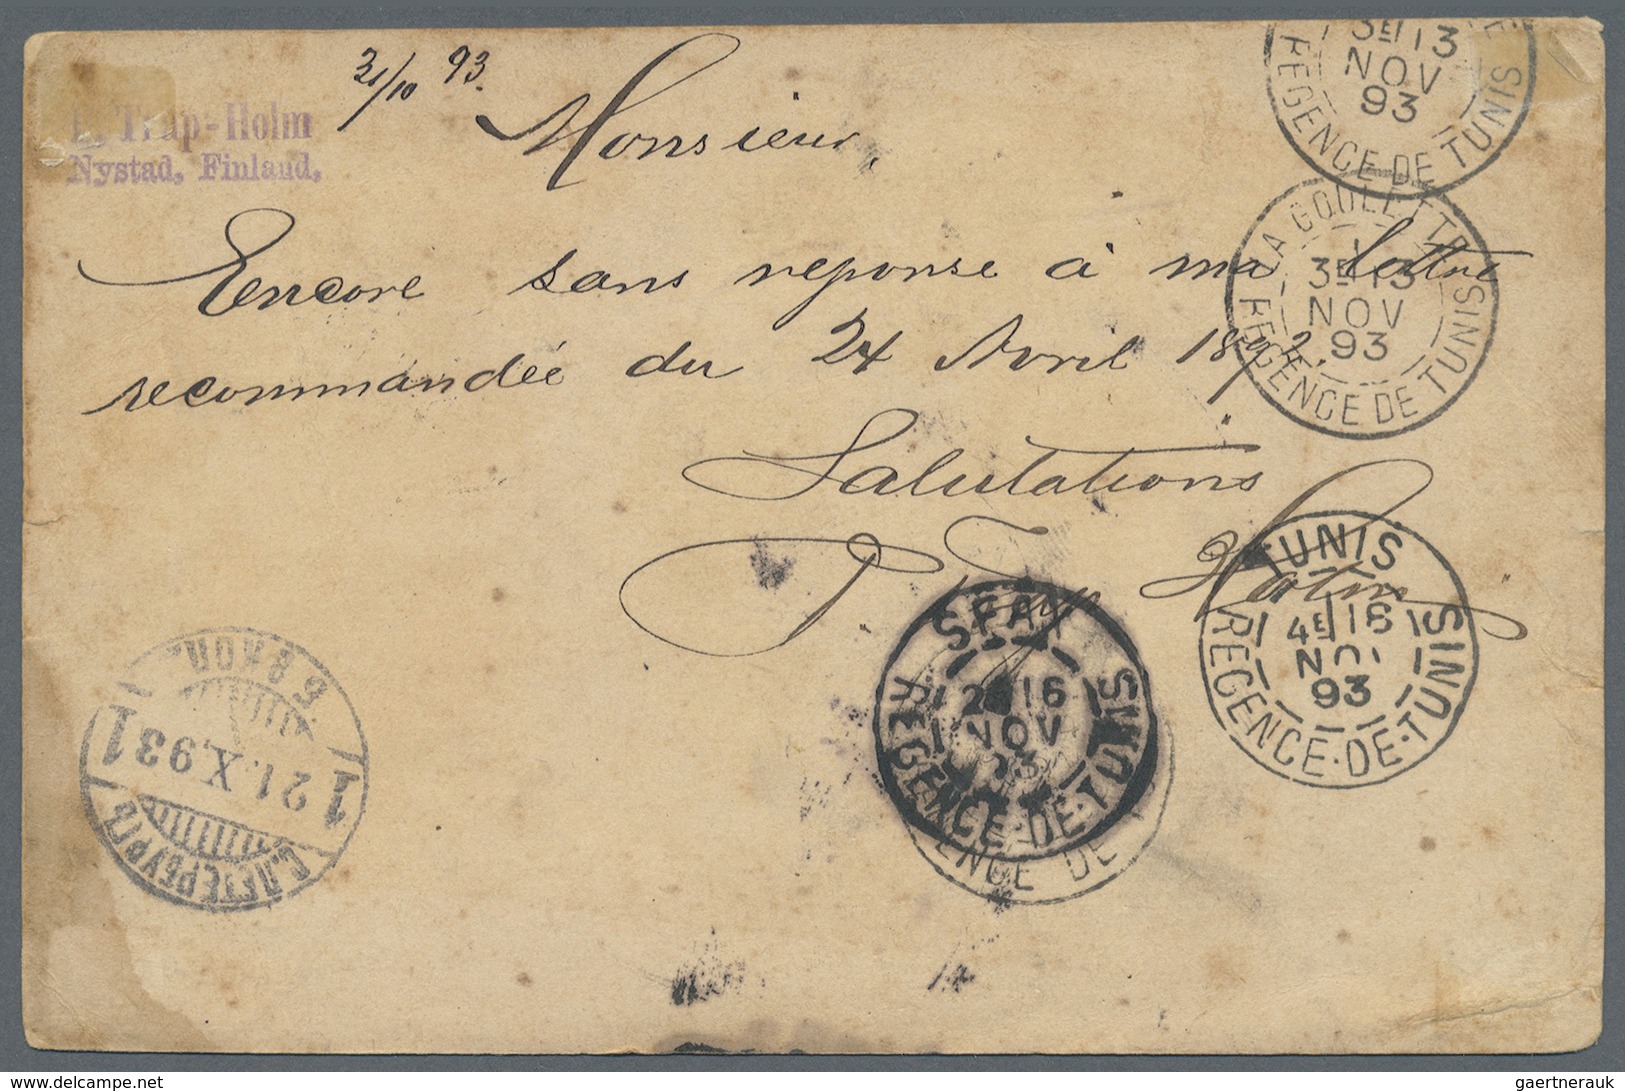 31/10 93.
Trap-Holm
Nystad, Finland,
Monsieur,
Encore sans reponse à ma lettre
recommandée du 24 Avril 1892.
Salutations
Trap Holm
3E 13
NOV
93
REGENCE DE TUNIS
LA GOULETTE
3E 13
NOV
93
REGENCE DE TUNIS
TUNIS
4E 16
93
REGENCE·DE·TUNIS
SFAX
16
NOV
93
REGENCE·DE·TUNIS
ENCE DE
1 21.X.93 1
С.ПЕТЕРБУРГЪ
gaertnerauk @ delcampe.net